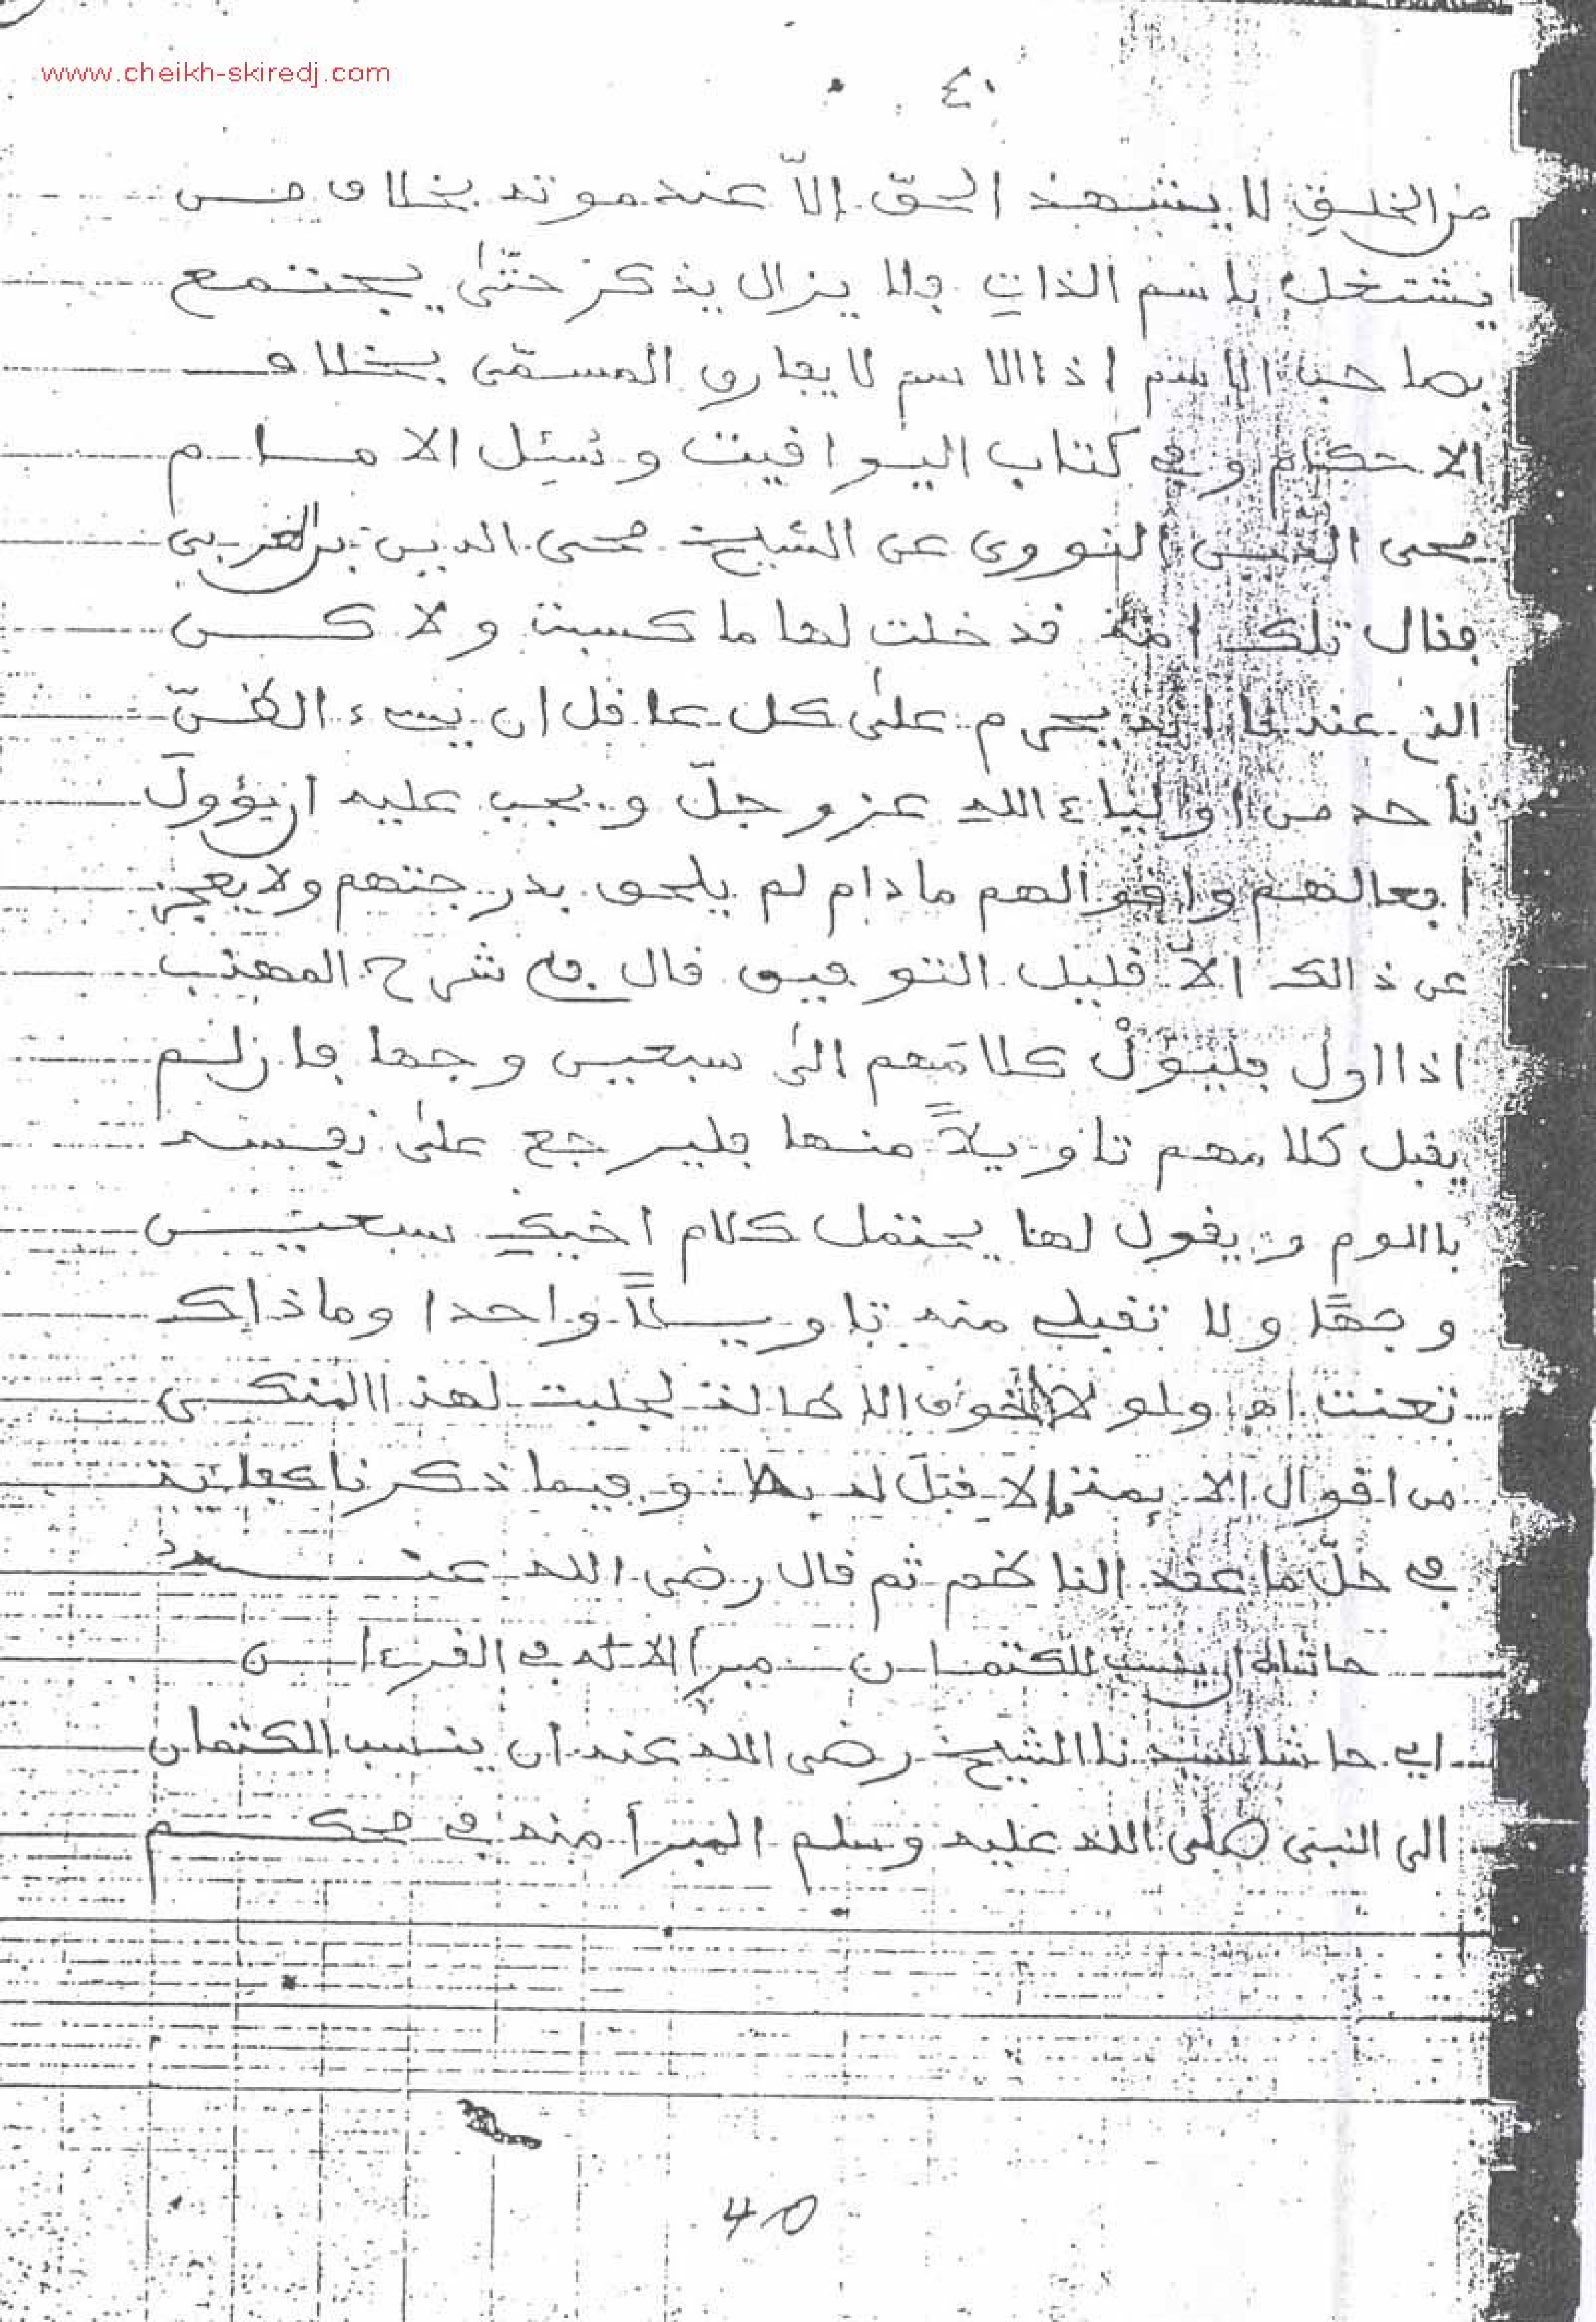 www.cheikh-skiredj.com
٤٠
من الخلق لا يشهد الحقّ إلاّ عند موته بخلاف من
يشتغل باسم الذات فلا يزال يذكر حتّى يجتمع
بصاحب الاسم اذ الاسم لا يفارق المسمّى بخلاف
الاحكام وفي كتاب اليواقيت وسُئِل الامام
محي الدين النووي عن الشيخ محي الدين بن العربي
فقال تلك امة قد خلت لها ما كسبت ولاكن
الذي عندنا انه يحرم على كل عاقل ان يسيء الظنّ
بأحد من اولياء الله عز وجلّ ويجب عليه ان يؤول
افعالهم واقوالهم مادام لم يلحق بدرجتهم ولا يعجز
عن ذالك الاّ قليل التوفيق قال في شرح المهذب
اذا اول فليؤلْ كلامهم الى سبعين وجها فان لم
يقبل كلامهم تاويلاً منها فليرجع على نفسه
باللوم ويقول لها يحتمل كلام اخيك سبعين
وجهًا ولا تقبل منه تاويلاً واحدا وما ذاك
تعنت اه ولولا خوف الاطالة لجلبت لهذا المنكر
من اقوال الايمة ما لا قبل له به وفيما ذكرنا كفاية
في حلّ ما عقد الناظم ثم قال رضي الله عنه
حاشاه ان ينسب للكتمان مبرأ الاله في القرءان
اي حاشا سيدنا الشيخ رضي الله عنه ان ينسب الكتمان
الى النبي صلى الله عليه وسلم المبرأ منه في محكم
40